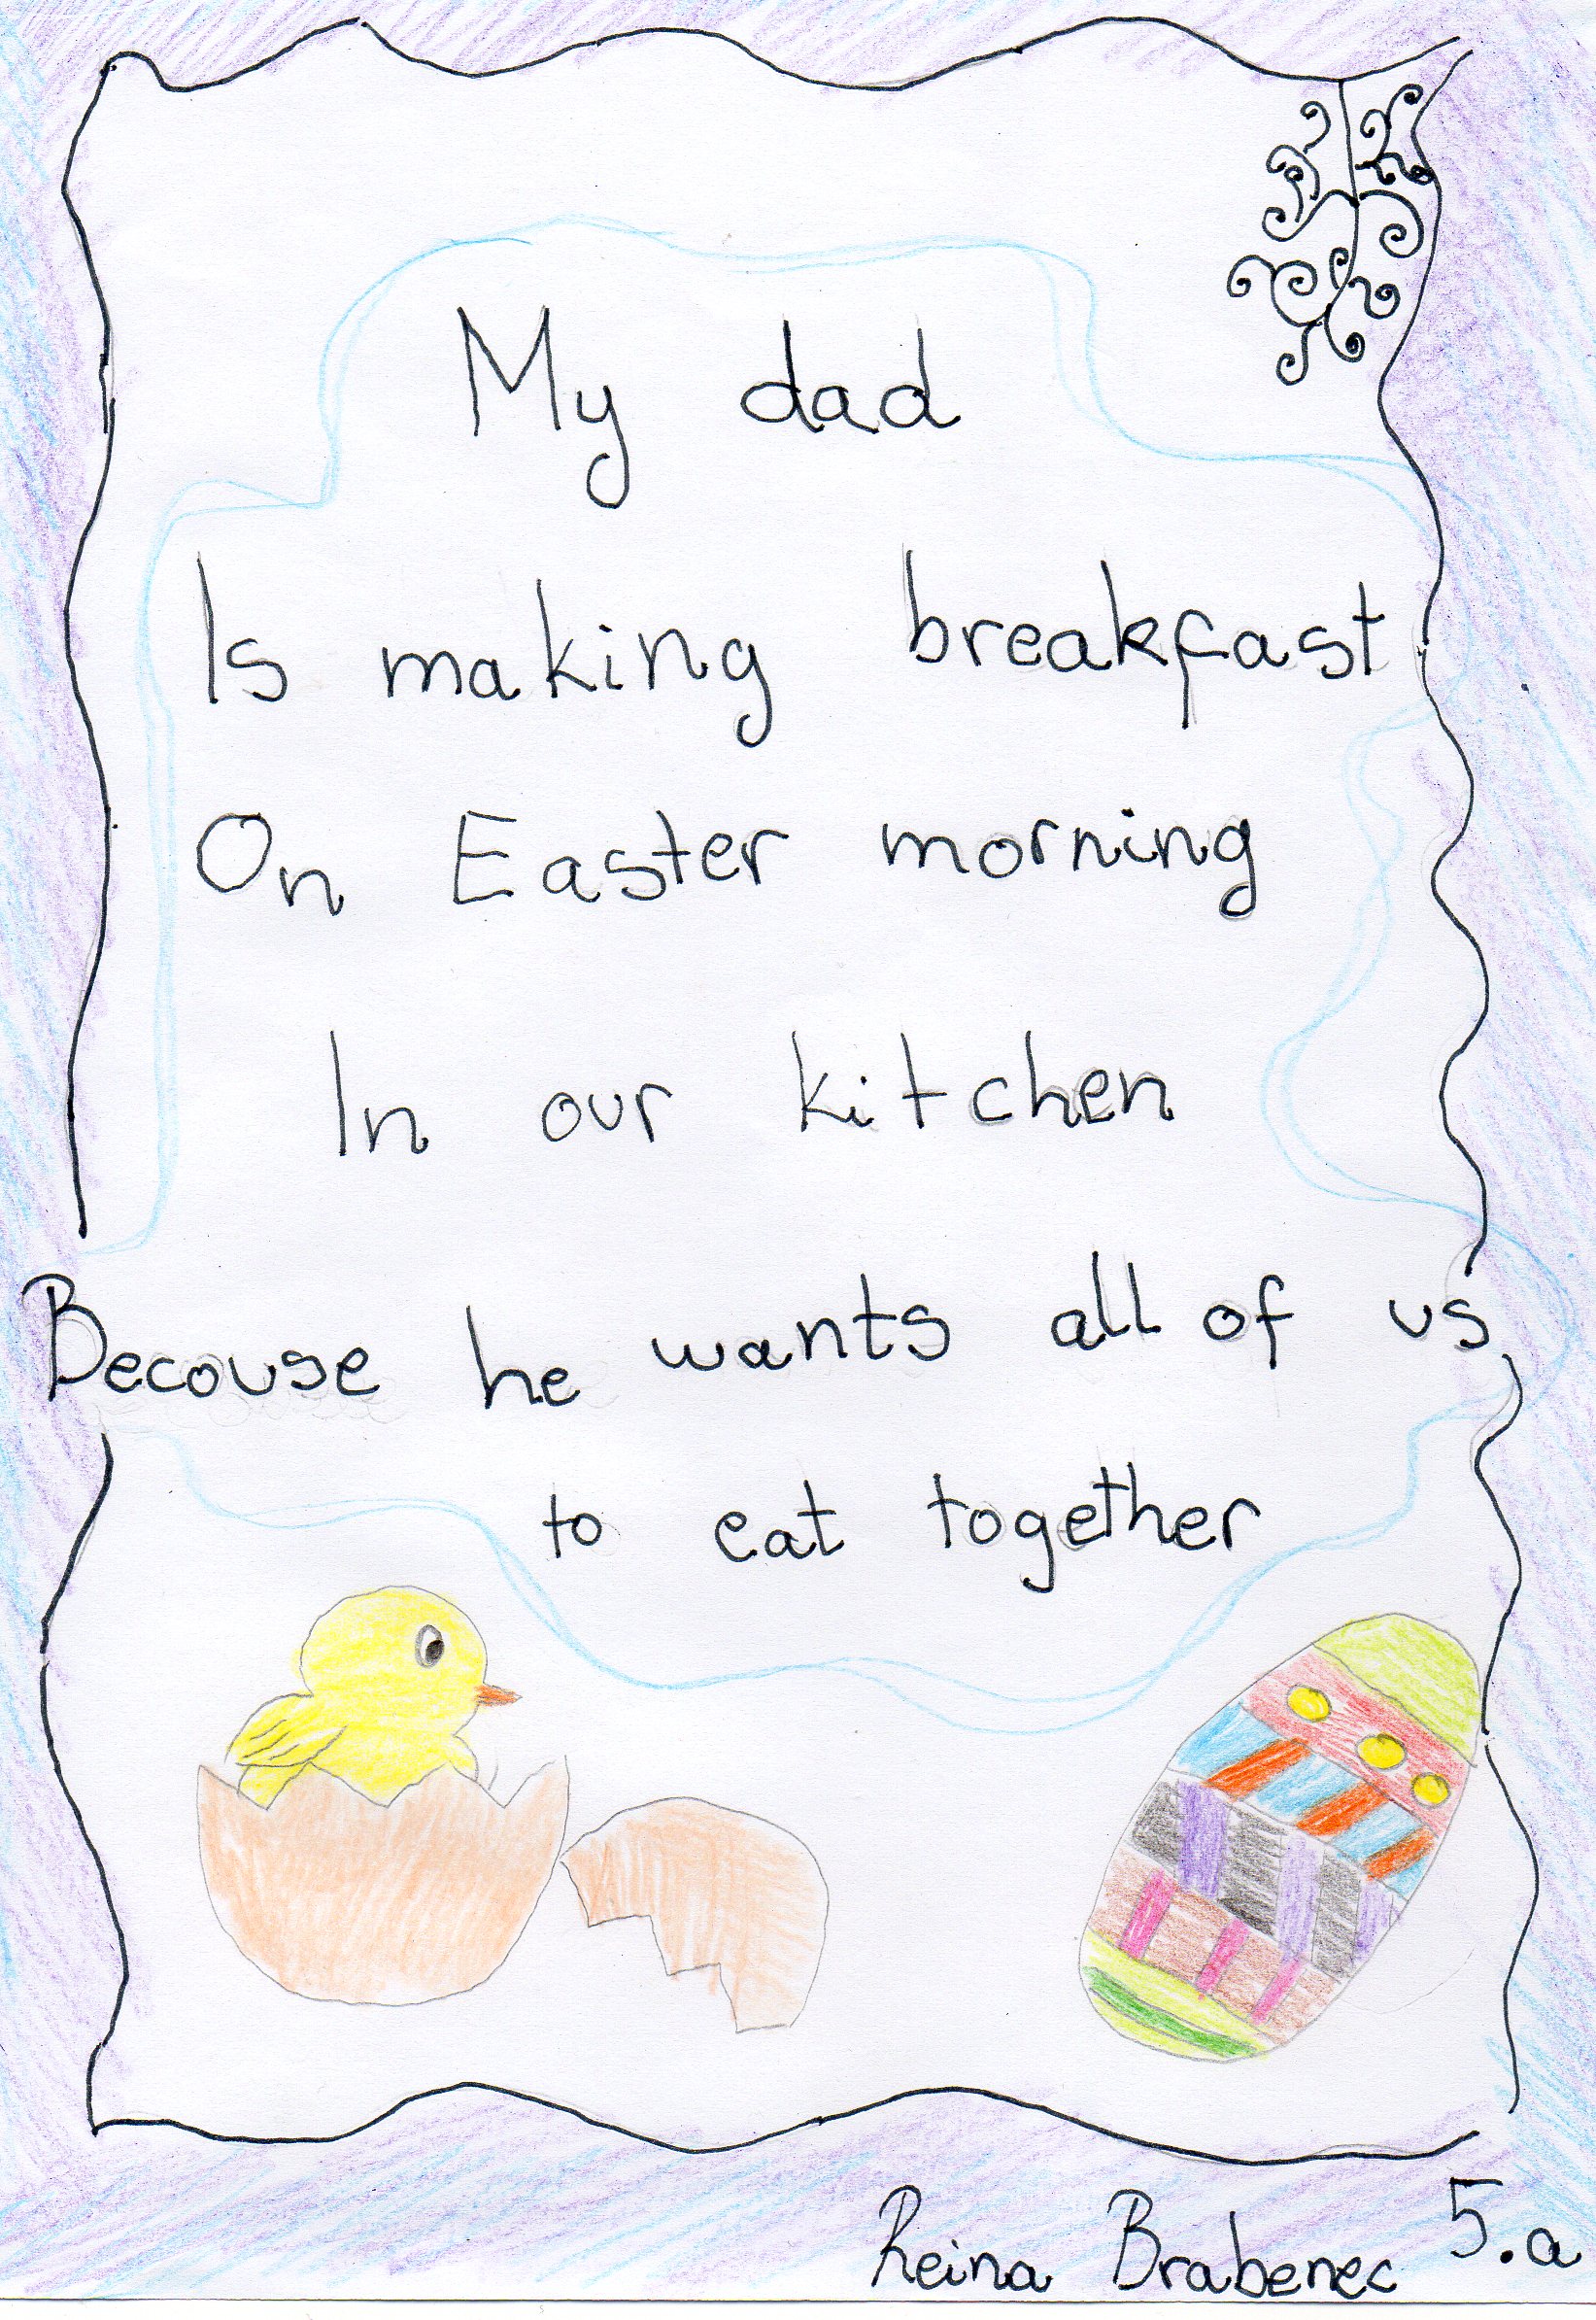 My dad
Is making breakfast
On Easter morning
In our kitchen
Becouse he wants all of us
to eat together
Reina Brabenec 5.a